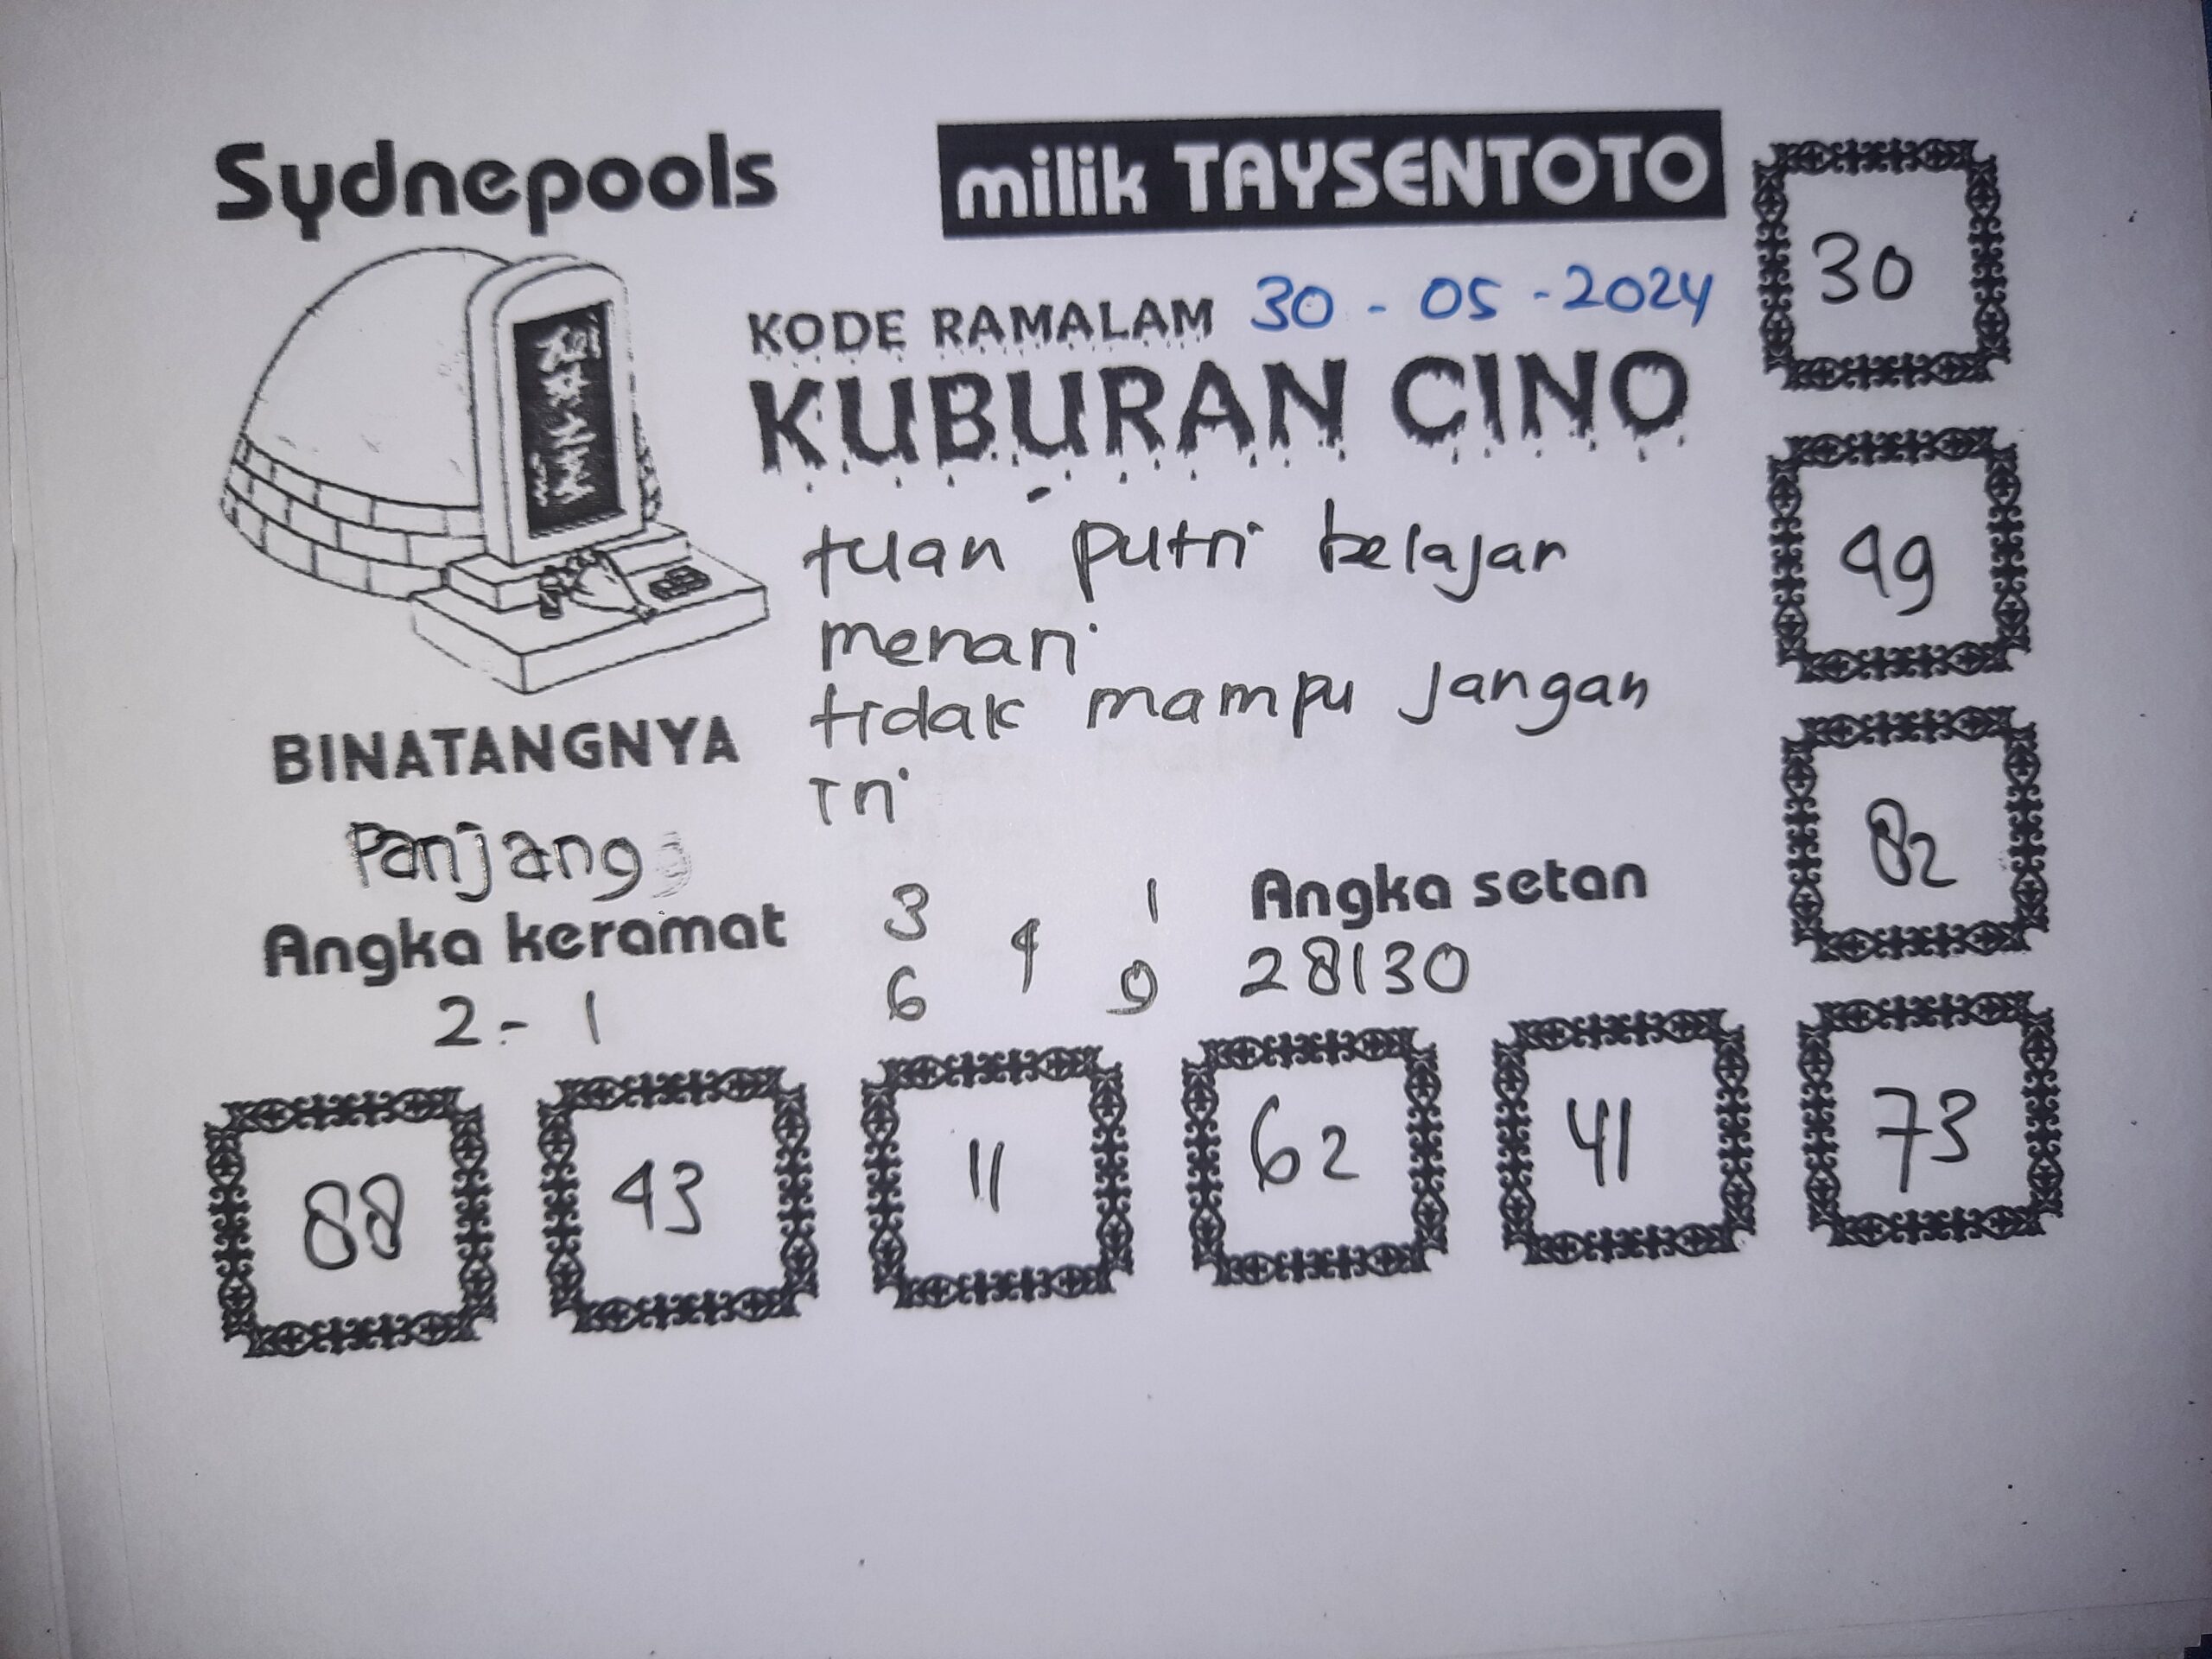 Sydnepools
milik TAYSENTOTO
KODE RAMALAM 30 - 05 - 2024
KUBURAN CINO
tuan putri belajar
menari
tidak mampu jangan
iri
BINATANGNYA
Panjang
Angka keramat
2 - 1
3 1
4
6 9
Angka setan
28130
30
49
82
88 43 11 62 41 73